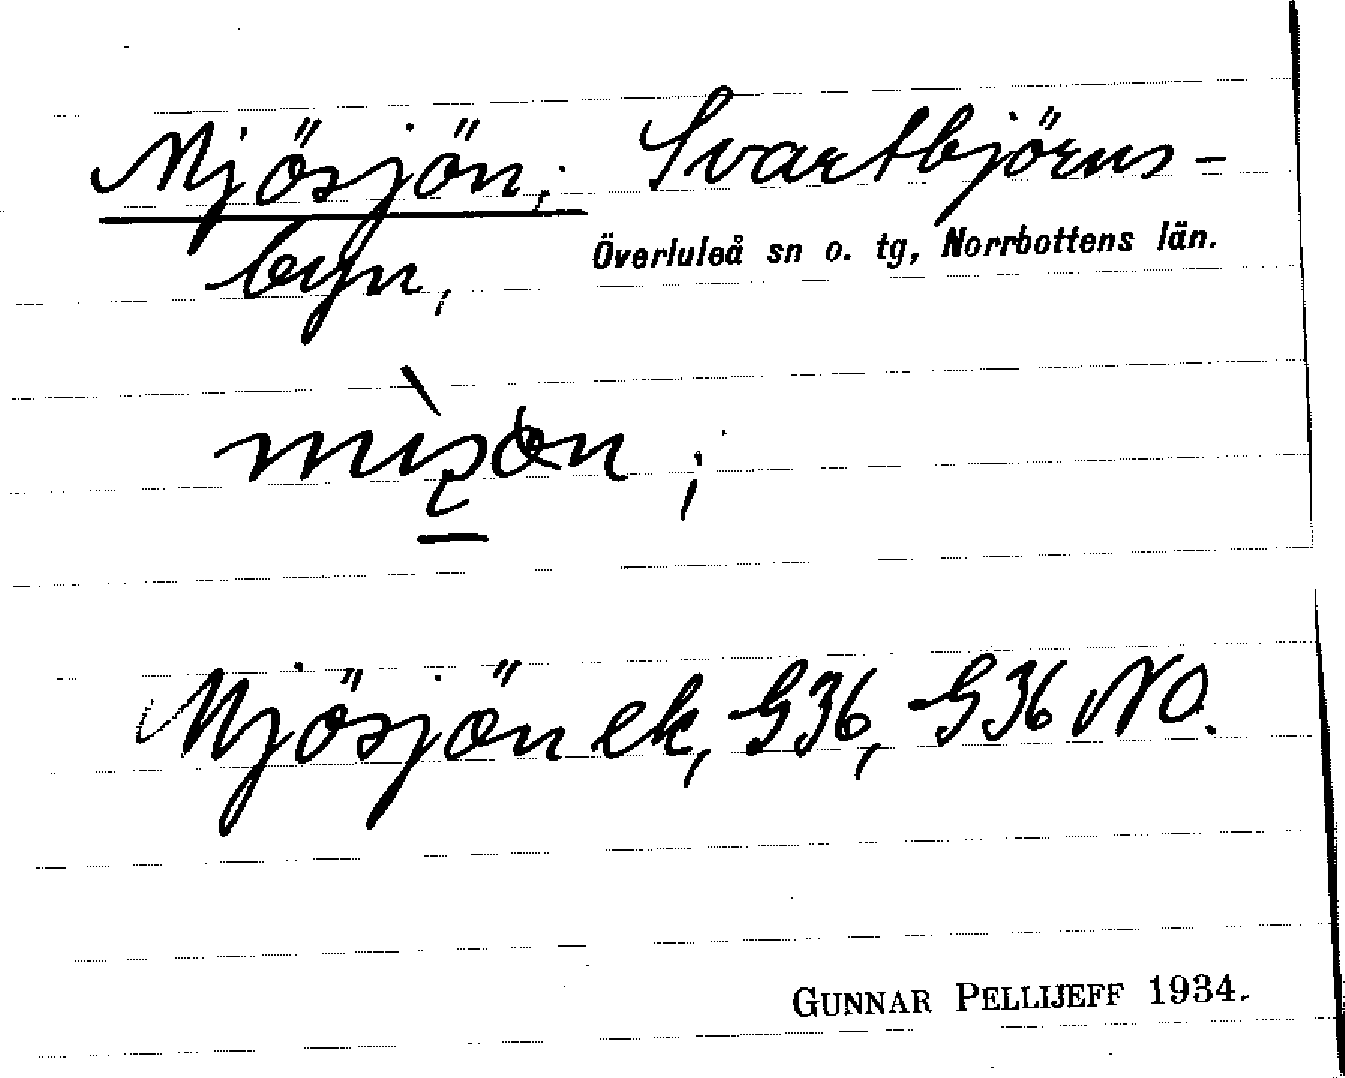 Mjösjön, Svartbjörns-
byn, Överluleå sn o. tg, Norrbottens län.
Mjösjön ek, G36, G36 NO.
GUNNAR PELLIJEFF 1934.